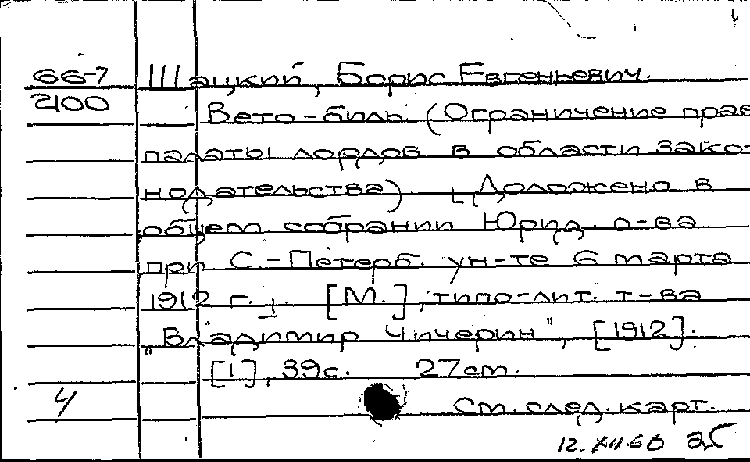 66-7 Шацкий, Борис Евгеньевич.
2100 Вето-билль. (Ограничение прав
палаты лордов в области зако-
нодательства). [Доложено в
общем собрании Юрид. о-ва
при С.-Петерб. ун-те 6 марта
1912 г.]. [М.], типо-лит. т-ва
"Владимир Чичерин", [1912].
[1], 39с. 27см.
4 См. след. карт.
12.XII.66